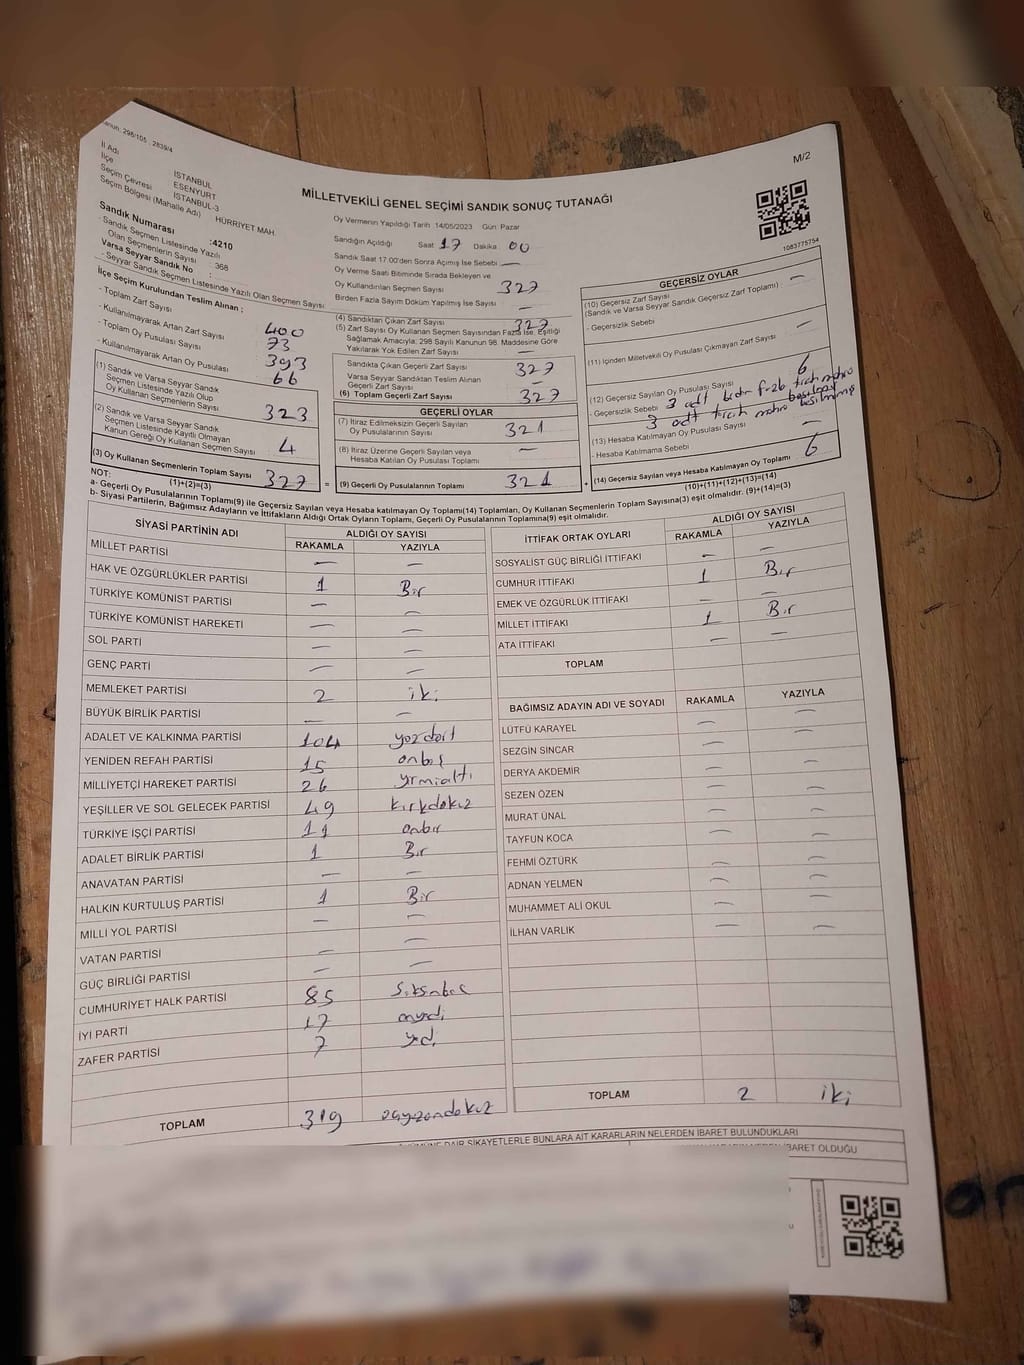 M/2
İl Adı İSTANBUL
İlçe ESENYURT
Seçim Çevresi İSTANBUL-3
Seçim Bölgesi (Mahalle Adı) HÜRRİYET MAH.
Sandık Numarası :4210
- Sandık Seçmen Listesinde Yazılı
Olan Seçmenlerin Sayısı : 368
Varsa Seyyar Sandık No :
- Seyyar Sandık Seçmen Listesinde Yazılı Olan Seçmen Sayısı:
MİLLETVEKİLİ GENEL SEÇİMİ SANDIK SONUÇ TUTANAĞI
Oy Vermenin Yapıldığı Tarih 14/05/2023 Gün: Pazar
Sandığın Açıldığı Saat 17 Dakika: 00
Sandık Saat 17:00'den Sonra Açımış İse Sebebi —
Oy Verme Saati Bitiminde Sırada Bekleyen ve
Oy Kullandırılan Seçmen Sayısı 327
Birden Fazla Sayım Döküm Yapılmış İse Sayısı —
1083775754
İlçe Seçim Kurulundan Teslim Alınan ;
- Toplam Zarf Sayısı 400
- Kullanılmayarak Artan Zarf Sayısı 73
- Toplam Oy Pusulası Sayısı 393
- Kullanılmayarak Artan Oy Pusulası 66
(1) Sandık ve Varsa Seyyar Sandık
Seçmen Listesinde Yazılı Olup
Oy Kullanan Seçmenlerin Sayısı 323
(2) Sandık ve Varsa Seyyar Sandık
Seçmen Listesinde Kayıtlı Olmayan
Kanun Gereği Oy Kullanan Seçmen Sayısı 4
(3) Oy Kullanan Seçmenlerin Toplam Sayısı 327
(1)+(2)=(3)
(4) Sandıktan Çıkan Zarf Sayısı 327
(5) Zarf Sayısı Oy Kullanan Seçmen Sayısından Fazla İse, Eşitliği
Sağlamak Amacıyla; 298 Sayılı Kanunun 98. Maddesine Göre
Yakılarak Yok Edilen Zarf Sayısı —
Sandıkta Çıkan Geçerli Zarf Sayısı 327
Varsa Seyyar Sandıktan Teslim Alınan
Geçerli Zarf Sayısı —
(6) Toplam Geçerli Zarf Sayısı 327
GEÇERLİ OYLAR
(7) İtiraz Edilmeksizin Geçerli Sayılan
Oy Pusulalarının Sayısı 321
(8) İtiraz Üzerine Geçerli Sayılan ve
Hesaba Katılan Oy Pusulası Toplamı —
= (9) Geçerli Oy Pusulalarının Toplamı 321 +
GEÇERSİZ OYLAR
(10) Geçersiz Zarf Sayısı —
(Sandık ve Varsa Seyyar Sandık Geçersiz Zarf Toplamı) :
- Geçersizlik Sebebi
(11) İçinden Milletvekili Oy Pusulası Çıkmayan Zarf Sayısı —
(12) Geçersiz Sayılan Oy Pusulası Sayısı 6
- Geçersizlik Sebebi 3 adt
3 adt
(13) Hesaba Katılmayan Oy Pusulası Sayısı —
- Hesaba Katılmama Sebebi
(14) Geçersiz Sayılan veya Hesaba Katılmayan Oy Toplamı 6
(10)+(11)+(12)+(13)=(14)
NOT:
a- Geçerli Oy Pusulalarının Toplamı(9) ile Geçersiz Sayılan veya Hesaba katılmayan Oy Toplamı(14) Toplamları, Oy Kullanan Seçmenlerin Toplam Sayısına(3) eşit olmalıdır. (9)+(14)=(3)
b- Siyasi Partilerin, Bağımsız Adayların ve İttifakların Aldığı Ortak Oyların Toplamı, Geçerli Oy Pusulalarının Toplamına(9) eşit olmalıdır.
SİYASİ PARTİNİN ADI ALDIĞI OY SAYISI
RAKAMLA YAZIYLA
MİLLET PARTİSİ — —
HAK VE ÖZGÜRLÜKLER PARTİSİ 1 Bir
TÜRKİYE KOMÜNİST PARTİSİ — —
TÜRKİYE KOMÜNİST HAREKETİ — —
SOL PARTİ — —
GENÇ PARTİ — —
MEMLEKET PARTİSİ 2 iki
BÜYÜK BİRLİK PARTİSİ — —
ADALET VE KALKINMA PARTİSİ 104 yüzdört
YENİDEN REFAH PARTİSİ 15 onbeş
MİLLİYETÇİ HAREKET PARTİSİ 26 yirmialtı
YEŞİLLER VE SOL GELECEK PARTİSİ 49 kırkdokuz
TÜRKİYE İŞÇİ PARTİSİ 11 onbir
ADALET BİRLİK PARTİSİ 1 Bir
ANAVATAN PARTİSİ — —
HALKIN KURTULUŞ PARTİSİ 1 Bir
MİLLİ YOL PARTİSİ — —
VATAN PARTİSİ — —
GÜÇ BİRLİĞİ PARTİSİ — —
CUMHURİYET HALK PARTİSİ 85 Seksenbeş
İYİ PARTİ 17 onyedi
ZAFER PARTİSİ 7 yedi
TOPLAM 319 üçyüzondokuz
İTTİFAK ORTAK OYLARI ALDIĞI OY SAYISI
RAKAMLA YAZIYLA
SOSYALİST GÜÇ BİRLİĞİ İTTİFAKI — —
CUMHUR İTTİFAKI 1 Bir
EMEK VE ÖZGÜRLÜK İTTİFAKI — —
MİLLET İTTİFAKI 1 Bir
ATA İTTİFAKI — —
TOPLAM
BAĞIMSIZ ADAYIN ADI VE SOYADI RAKAMLA YAZIYLA
LÜTFÜ KARAYEL — —
SEZGİN SİNCAR — —
DERYA AKDEMİR — —
SEZEN ÖZEN — —
MURAT ÜNAL — —
TAYFUN KOCA — —
FEHMİ ÖZTÜRK — —
ADNAN YELMEN — —
MUHAMMET ALİ OKUL — —
İLHAN VARLIK — —
TOPLAM 2 iki
DAİR ŞİKAYETLERLE BUNLARA AİT KARARLARIN NELERDEN İBARET BULUNDUKLARI
İBARET OLDUĞU